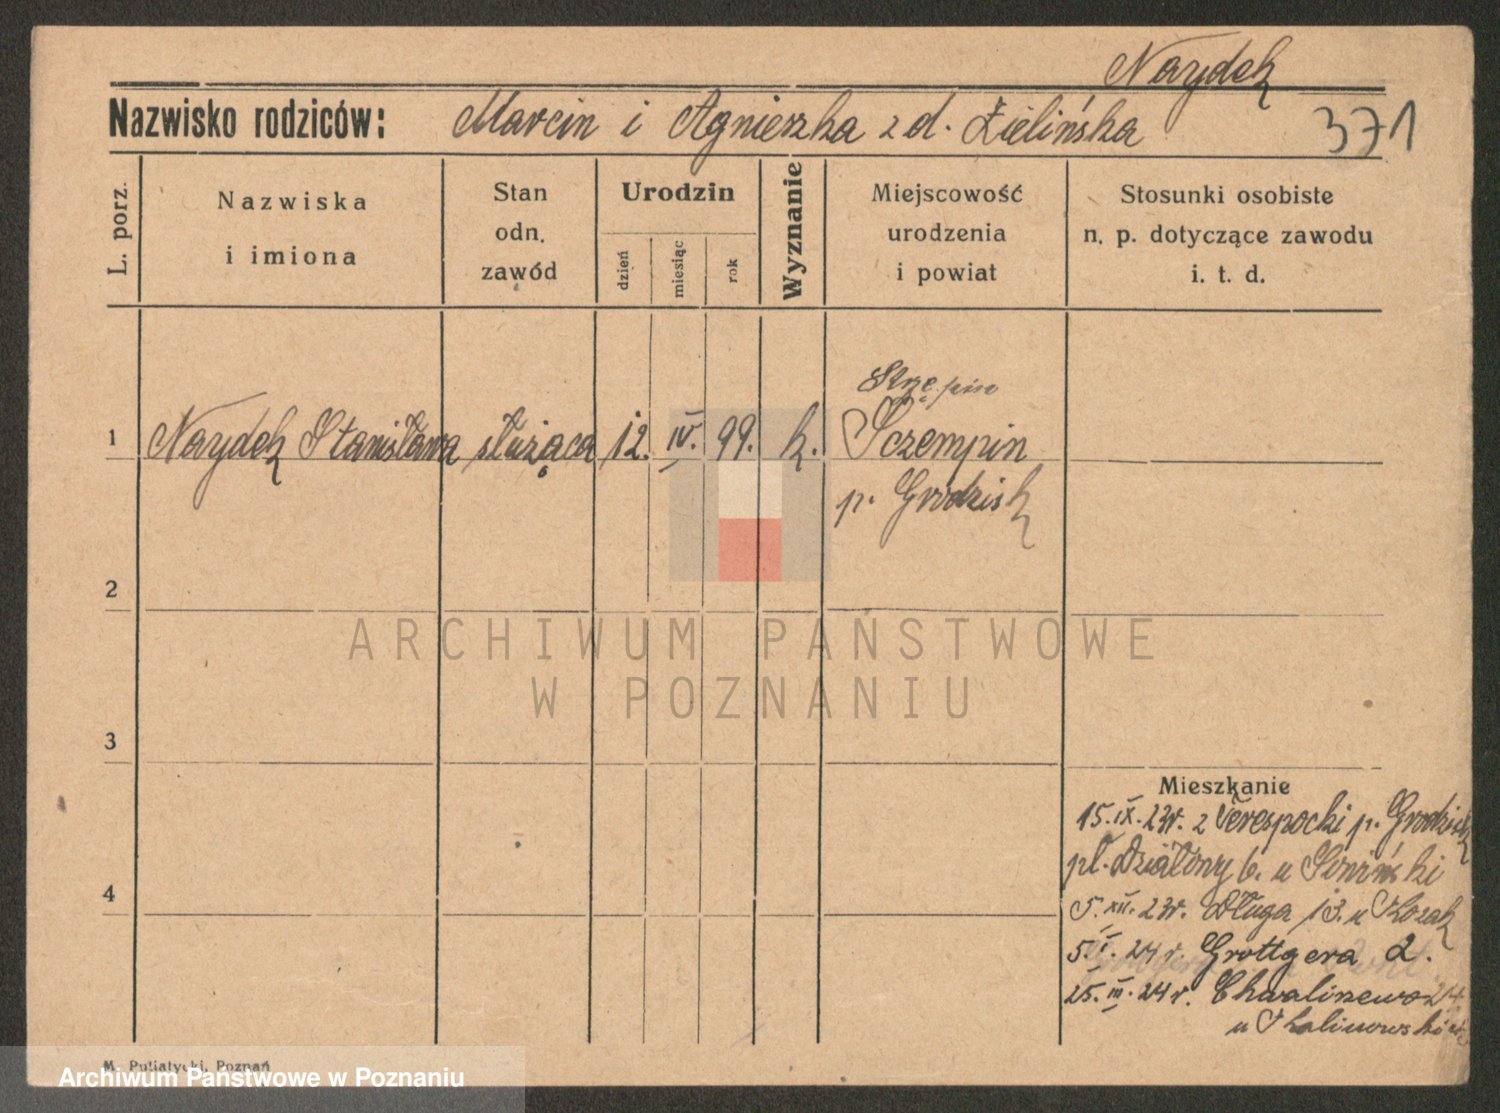 Naydek
Nazwisko rodziców: Marcin i Agnieszka z d. Zielińska
371
L. porz.
Nazwiska
i imiona
Stan
odn.
zawód
Urodzin
dzień
miesiąc
rok
Wyznanie
Miejscowość
urodzenia
i powiat
Stosunki osobiste
n. p. dotyczące zawodu
i. t. d.
Strzępin
1 Naydek Stanisława służąca 12. IV. 99. k. Sczempin
p. Grodzisk
2
ARCHIWUM PAŃSTWOWE
W POZNANIU
3
Mieszkanie
15. IX. 23r. z Terespocki p. Grodzisk
pl. Działowy 6. u
4
5. XII. 23r. Długa 13. u Kozak
5. I. 24 r. Grottgera 2.
25. III. 24 r. Chwaliszewo 24
u Kalinowski
M. Putiatycki, Poznań
Archiwum Państwowe w Poznaniu